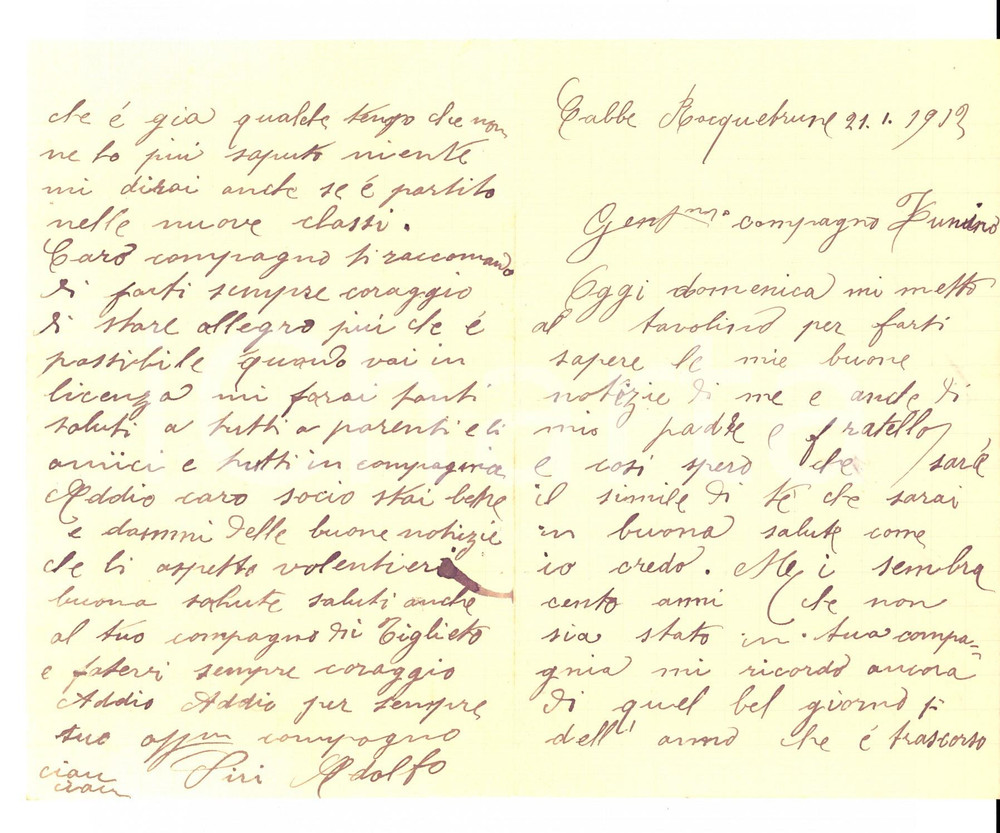 Cabbe Rocquebrune 21. 1. 1912
Gent.mo compagno Zunino
Oggi domenica mi metto
al tavolino per farti
sapere le mie buone
notizie di me e anche di
mio padre e fratello
e così spero che sarà
il simile di te che sarai
in buona salute come
io credo. Me i sembra
cento anni che non
sia stato in tua compa-
gnia mi ricordo ancora
di quel bel giorno
dell' anno che é trascorso
che é gia qualche tempo che non
ne ho piú saputo niente
mi dirai anche se é partito
nelle nuove classi.
Caro compagno ti raccomando
di farti sempre coraggio
di stare allegro piú che é
possibile quando vai in
licenza mi farai tanti
saluti a tutti a parenti e li
amici e tutti in compagnia
Addio caro socio stai bene
e dammi delle buone notizie
che li aspetto volentieri
buona salute saluti anche
al tuo compagno di Tiglieto
e fatevi sempre coraggio
Addio Addio per sempre
tuo affmo compagno
Piri Adolfo
ciau
ciau